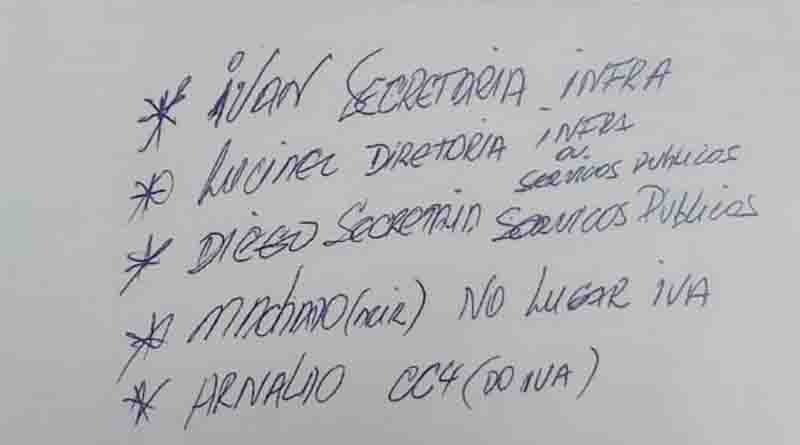 * IVAN SECRETARIA INFRA
* LUCINEL DIRETORIA INFRA
OU
SERVICOS PUBLICOS
* DIEGO SECRETARIA SERVICOS PUBLICOS
* MACHADO NO LUGAR IVA
* ARNALDO CC4 (DO IVA)